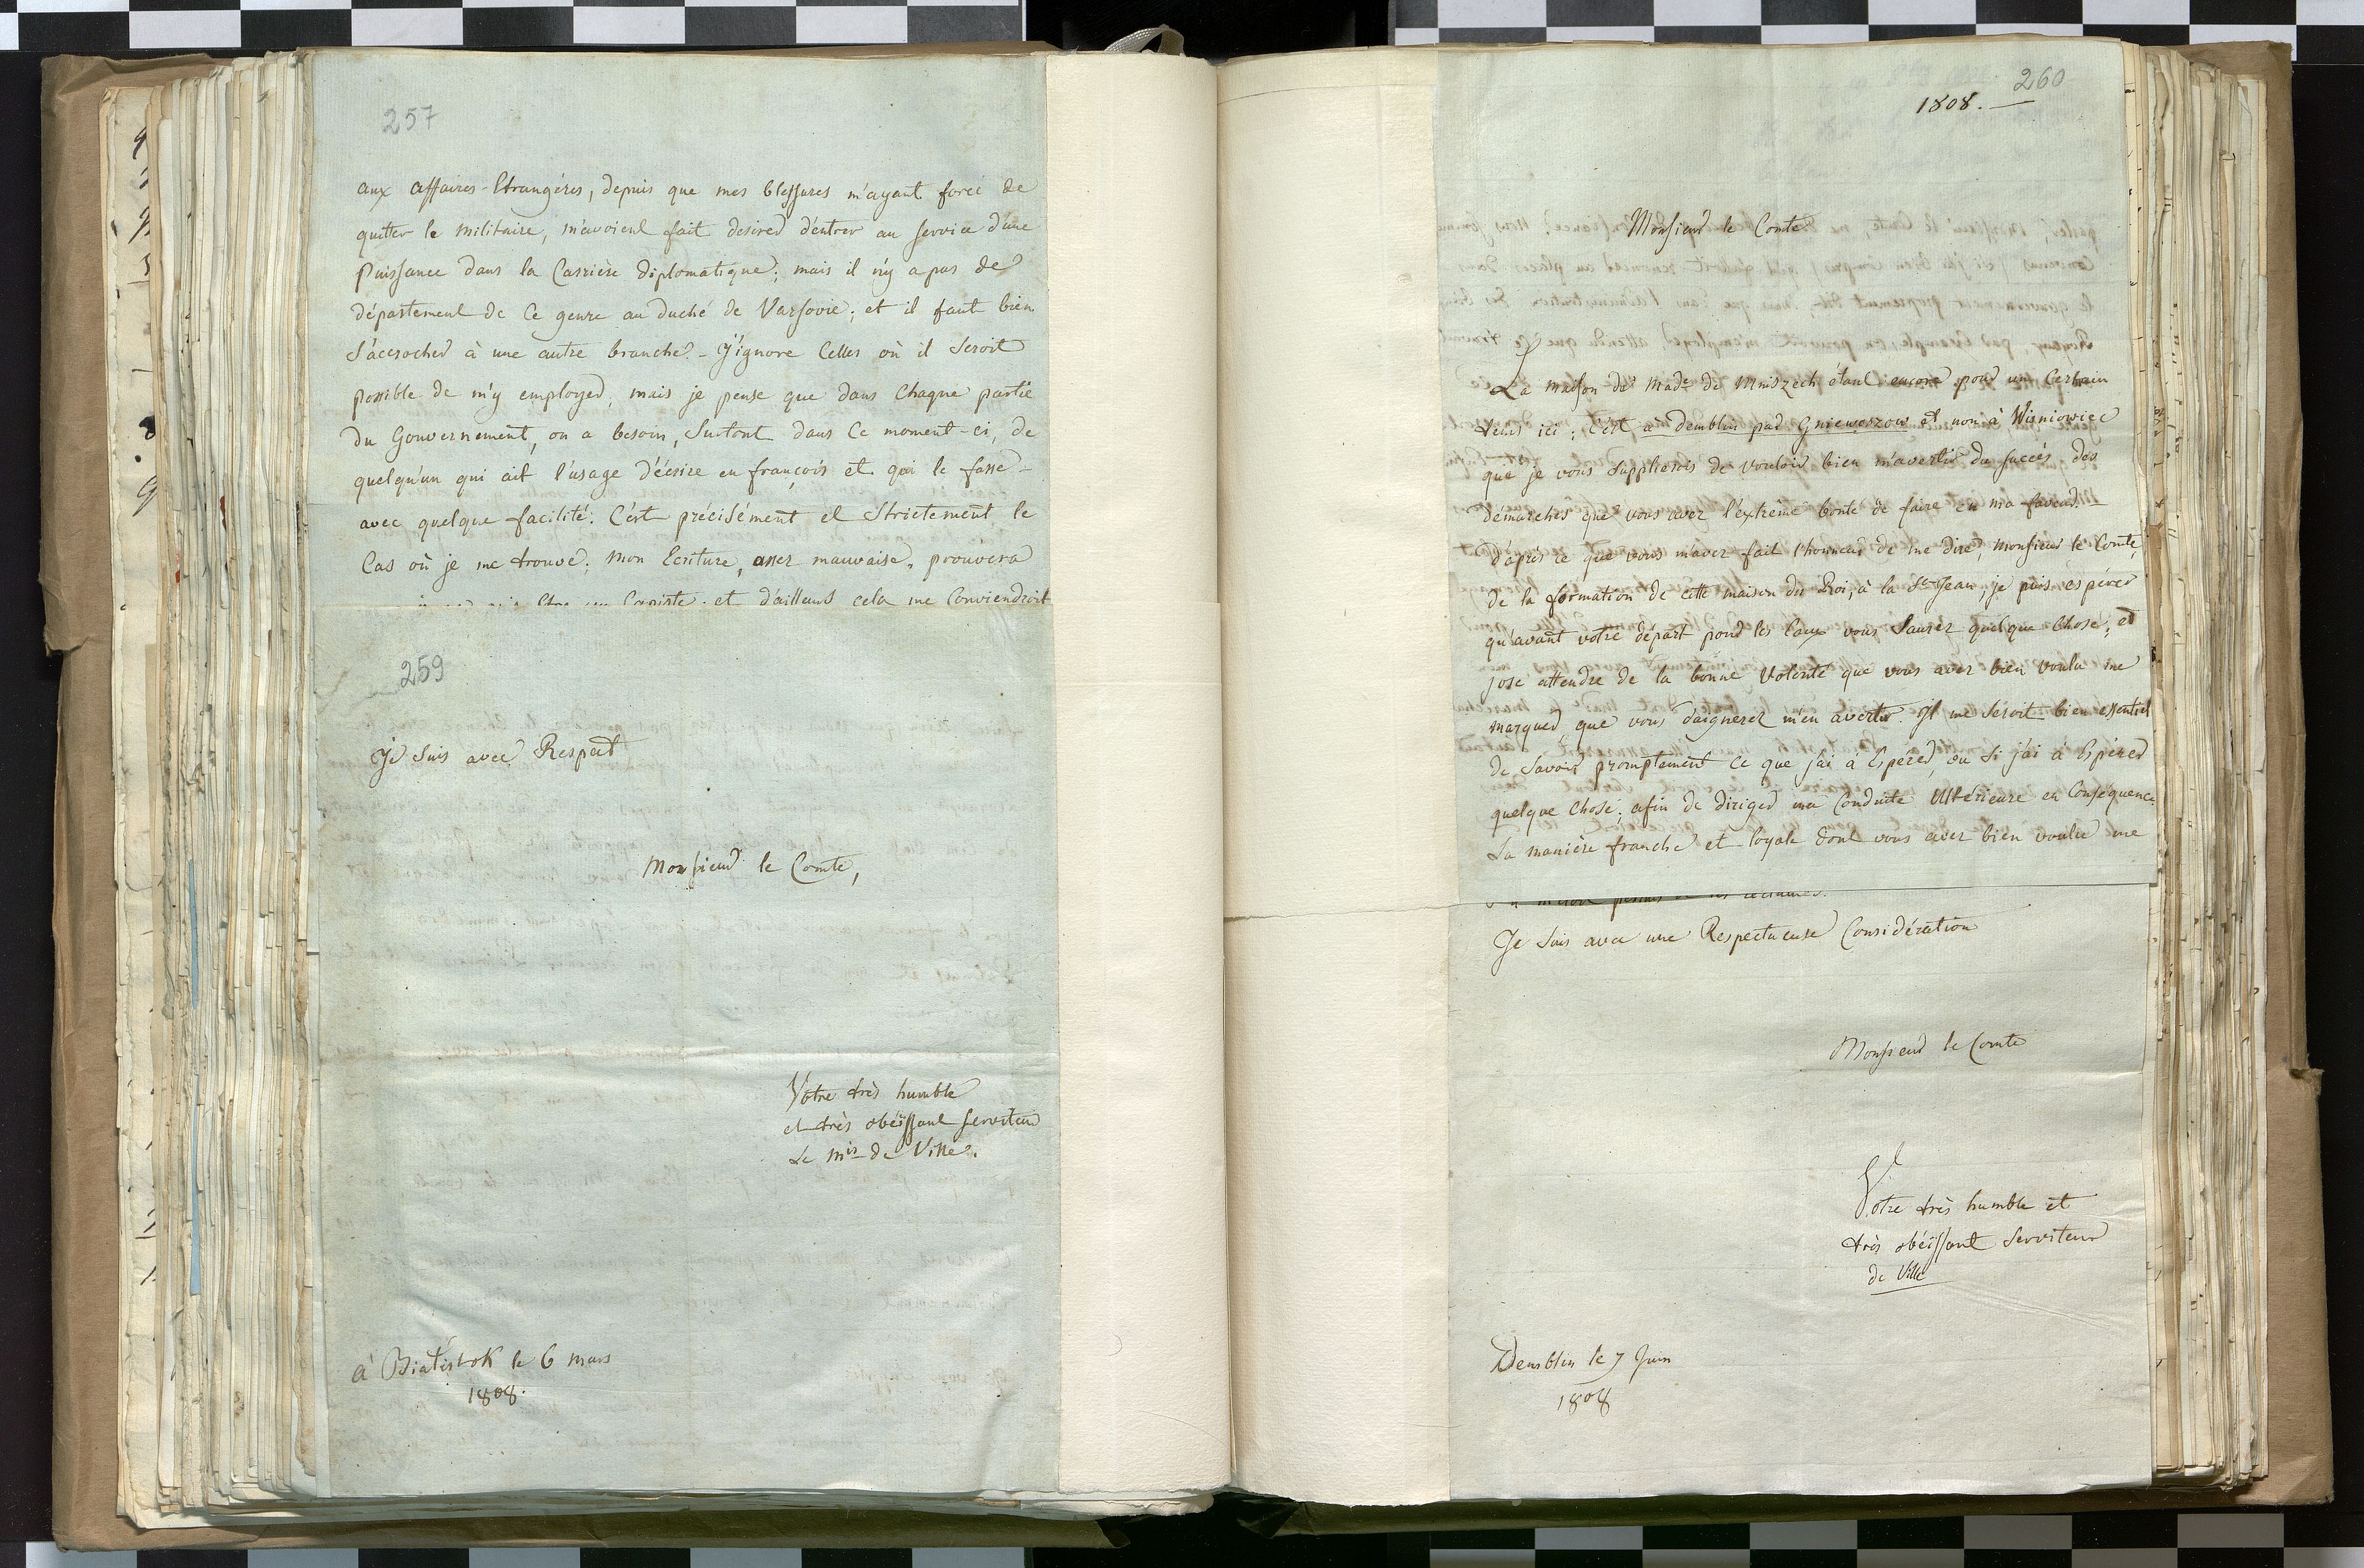 257
aux affaires-Etrangéres, depuis que mes blessures m'ayant forcé de
quitter le militaire, m'avoient fait desirer d'entrer au service d'une
Puissance dans la Carrière diplomatique; mais il n'y a pas de
département de ce genre au duché de Varsovie; et il faut bien
S'accrocher à une autre branche. - J'ignore Celles où il Seroit
possible de m'y employer, mais je pense que dans Chaque partie
du Gouvernement, on a besoin, Surtout dans Ce moment-ci, de
quelqu'un qui ait l'usage d'écrire en françois et qui le fasse
avec quelque facilité. C'est précisément et Strictement le
Cas où je me trouve; mon Ecriture, assez mauvaise, prouvera
Copiste et d'ailleurs cela me Conviendroit
259
Je Suis avec Respect
Monsieur le Comte,
Votre très humble
et très obéissant Serviteur
Le Mis de Ville.
à Białistok le 6 mars
1808.
260
1808.
Monsieur le Comte
La maison de Made de Mniszech étant encore pour un Certain
tems ici; C'est à demblin par Gniewoszow et non à Wisniowiec
que je vous Supplierois de vouloir bien m'avertir du Succès des
démarches que vous avez l'extrême bonté de faire en ma faveur. -
d'après ce que vous m'avez fait l'honneur de me dire, Monsieur le Comte,
de la formation de cette maison du Roi, à la St Jean, je puis espérer
qu'avant votre départ pour les Eaux vous Saurez quelque Chose; et
j'ose attendre de la bonne Volonté que vous avez bien voulu me
marquer, que vous daignerez m'en avertir. Il me Seroit bien essentiel
de Savoir promptement Ce que j'ai à Espérer, ou Si j'ai à Espérer
quelque Chose; afin de diriger ma Conduite Ultérieure en Conséquence
La manière franche et loyale dont vous avez bien voulu me
Je Suis avec une Respectueuse Considération
Monsieur le Comte
Votre très humble et
très obéissant Serviteur
de Ville
Demblin le 7 Juin
1808